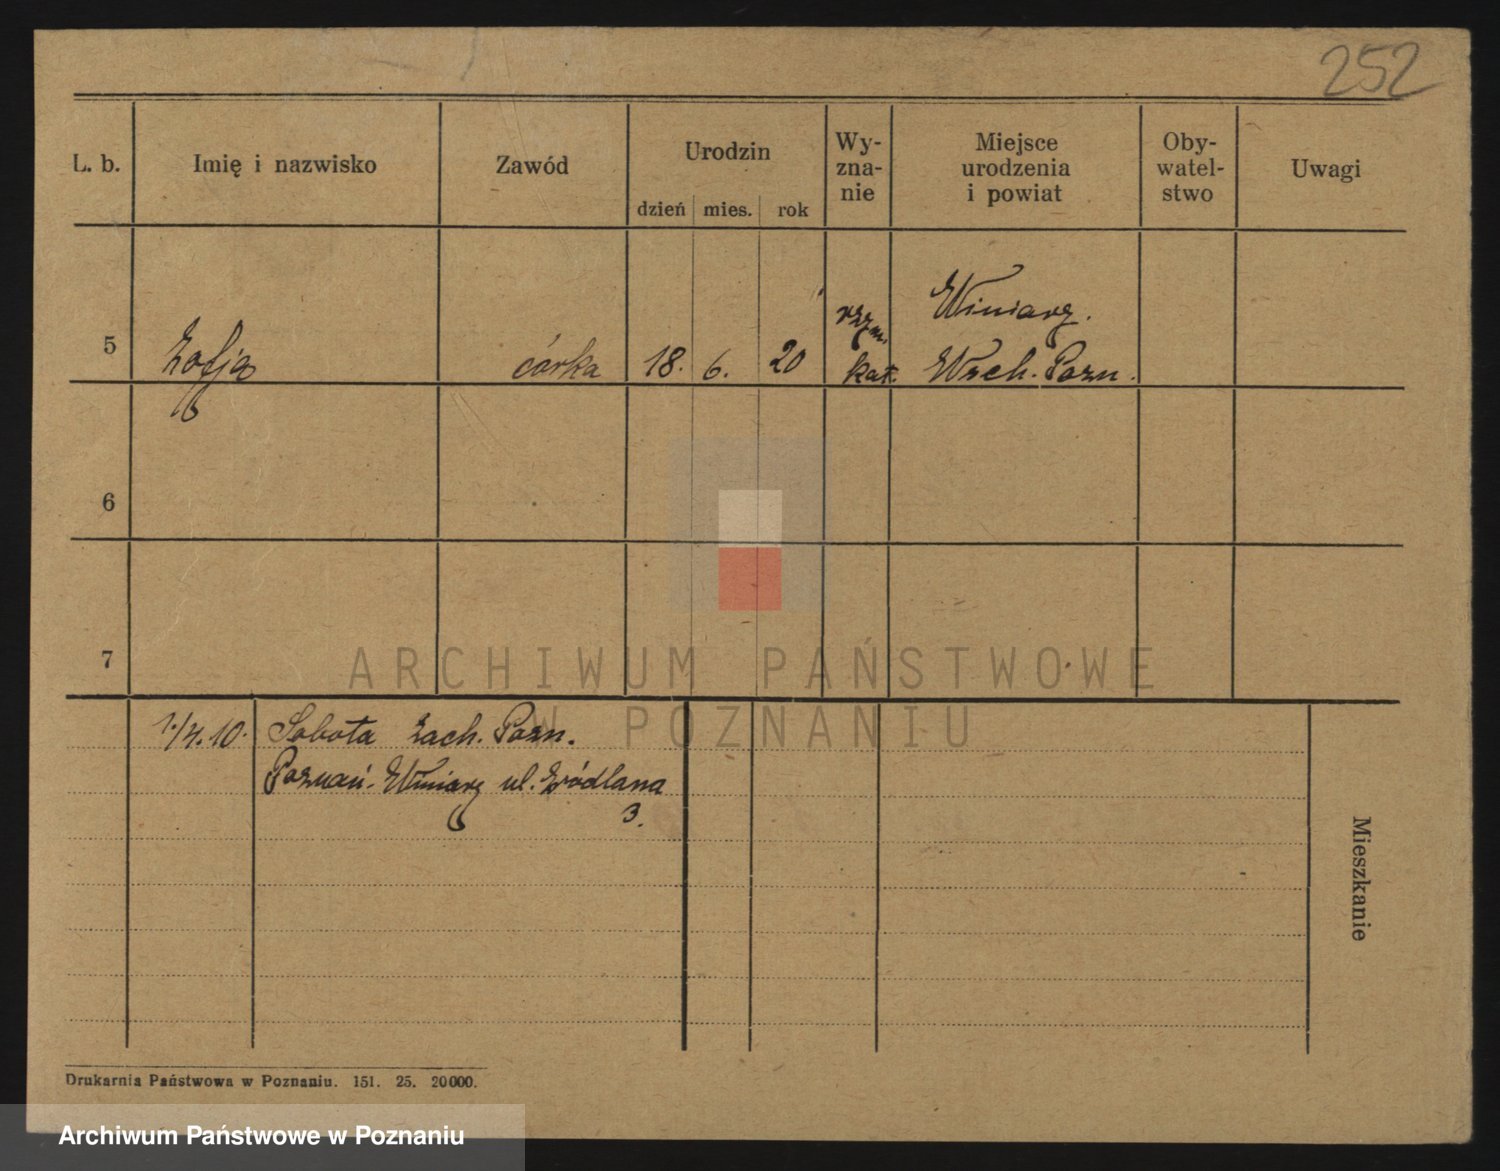 252
L. b. Imię i nazwisko Zawód Urodzin Wy- Miejsce Oby- Uwagi
zna- urodzenia watel-
nie i powiat stwo
dzień mies. rok
rzym. Winiary.
5 Zofja córka 18. 6. 20 kat. Wsch. Pozn.
6
7
1./4.10. Sobota zach. Pozn.
Poznań-Winiary ul. Źródlana
3.
Mieszkanie
Drukarnia Państwowa w Poznaniu. 151. 25. 20000.
ARCHIWUM PAŃSTWOWE
W POZNANIU
Archiwum Państwowe w Poznaniu